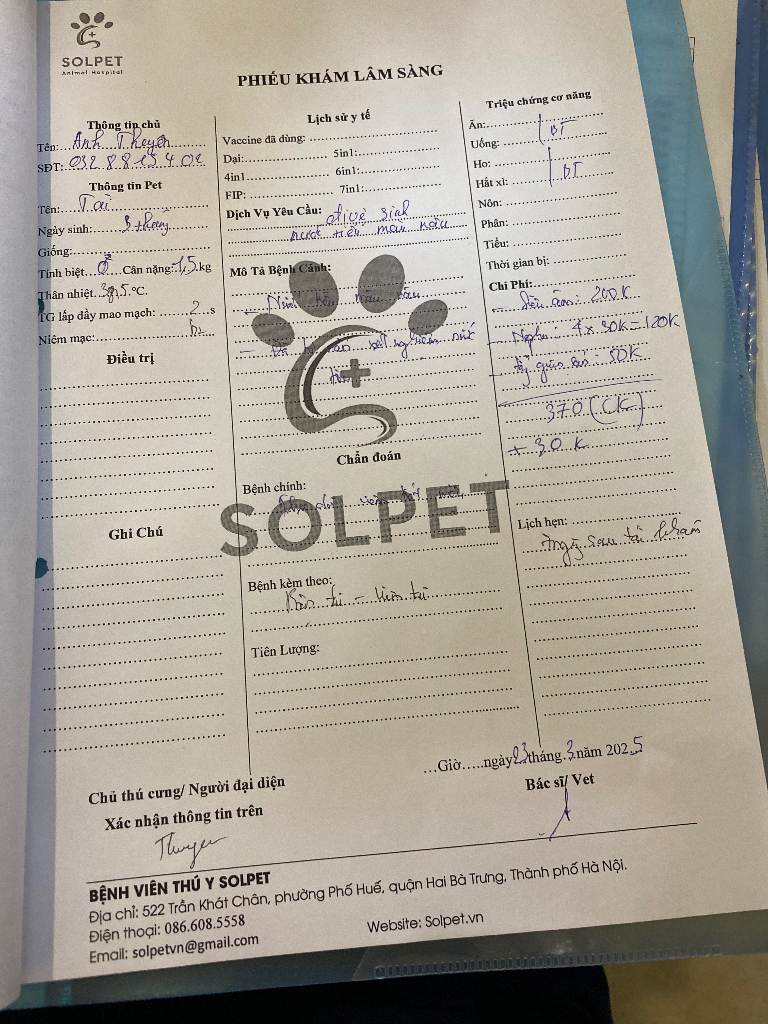 SOLPET
Animal Hospital
PHIẾU KHÁM LÂM SÀNG
Thông tin chủ
Tên: Anh Thuyên
SĐT:
Thông tin Pet
Tên: Tai
Ngày sinh: 3 tháng
Giống:
Tính biệt ♂ Cân nặng: 1,5 kg
Thân nhiệt 38,5 °C.
TG lấp đầy mao mạch: 2 s
Niêm mạc:
Điều trị
Ghi Chú
Lịch sử y tế
Vaccine đã dùng:
Dại: 5in1:
4in1 6in1:
FIP: 7in1:
Dịch Vụ Yêu Cầu: đi vệ sinh
nước tiểu màu nâu
Mô Tả Bệnh Cảnh:
- Nước tiểu màu nâu
- xét nghiệm nước
tiểu
Chẩn đoán
Bệnh chính:
SOLPET
Bệnh kèm theo:
Tiên Lượng:
Triệu chứng cơ năng
Ăn:
Uống: BT
Ho:
Hắt xì: BT
Nôn:
Phân:
Tiểu:
Thời gian bị:
Chi Phí:
- Siêu âm: 200K
- 4 x 30K = 120K
- 50K
370 (CK)
+ 30K
Lịch hẹn:
Ngày sau tái khám
…Giờ…..ngày 23 tháng 3 năm 2025
Chủ thú cưng/ Người đại diện
Xác nhận thông tin trên
Thuyen
Bác sĩ/ Vet
BỆNH VIỆN THÚ Y SOLPET
Địa chỉ: 522 Trần Khát Chân, phường Phố Huế, quận Hai Bà Trưng, Thành phố Hà Nội.
Điện thoại: 086.608.5558
Website: Solpet.vn
Email: solpetvn@gmail.com